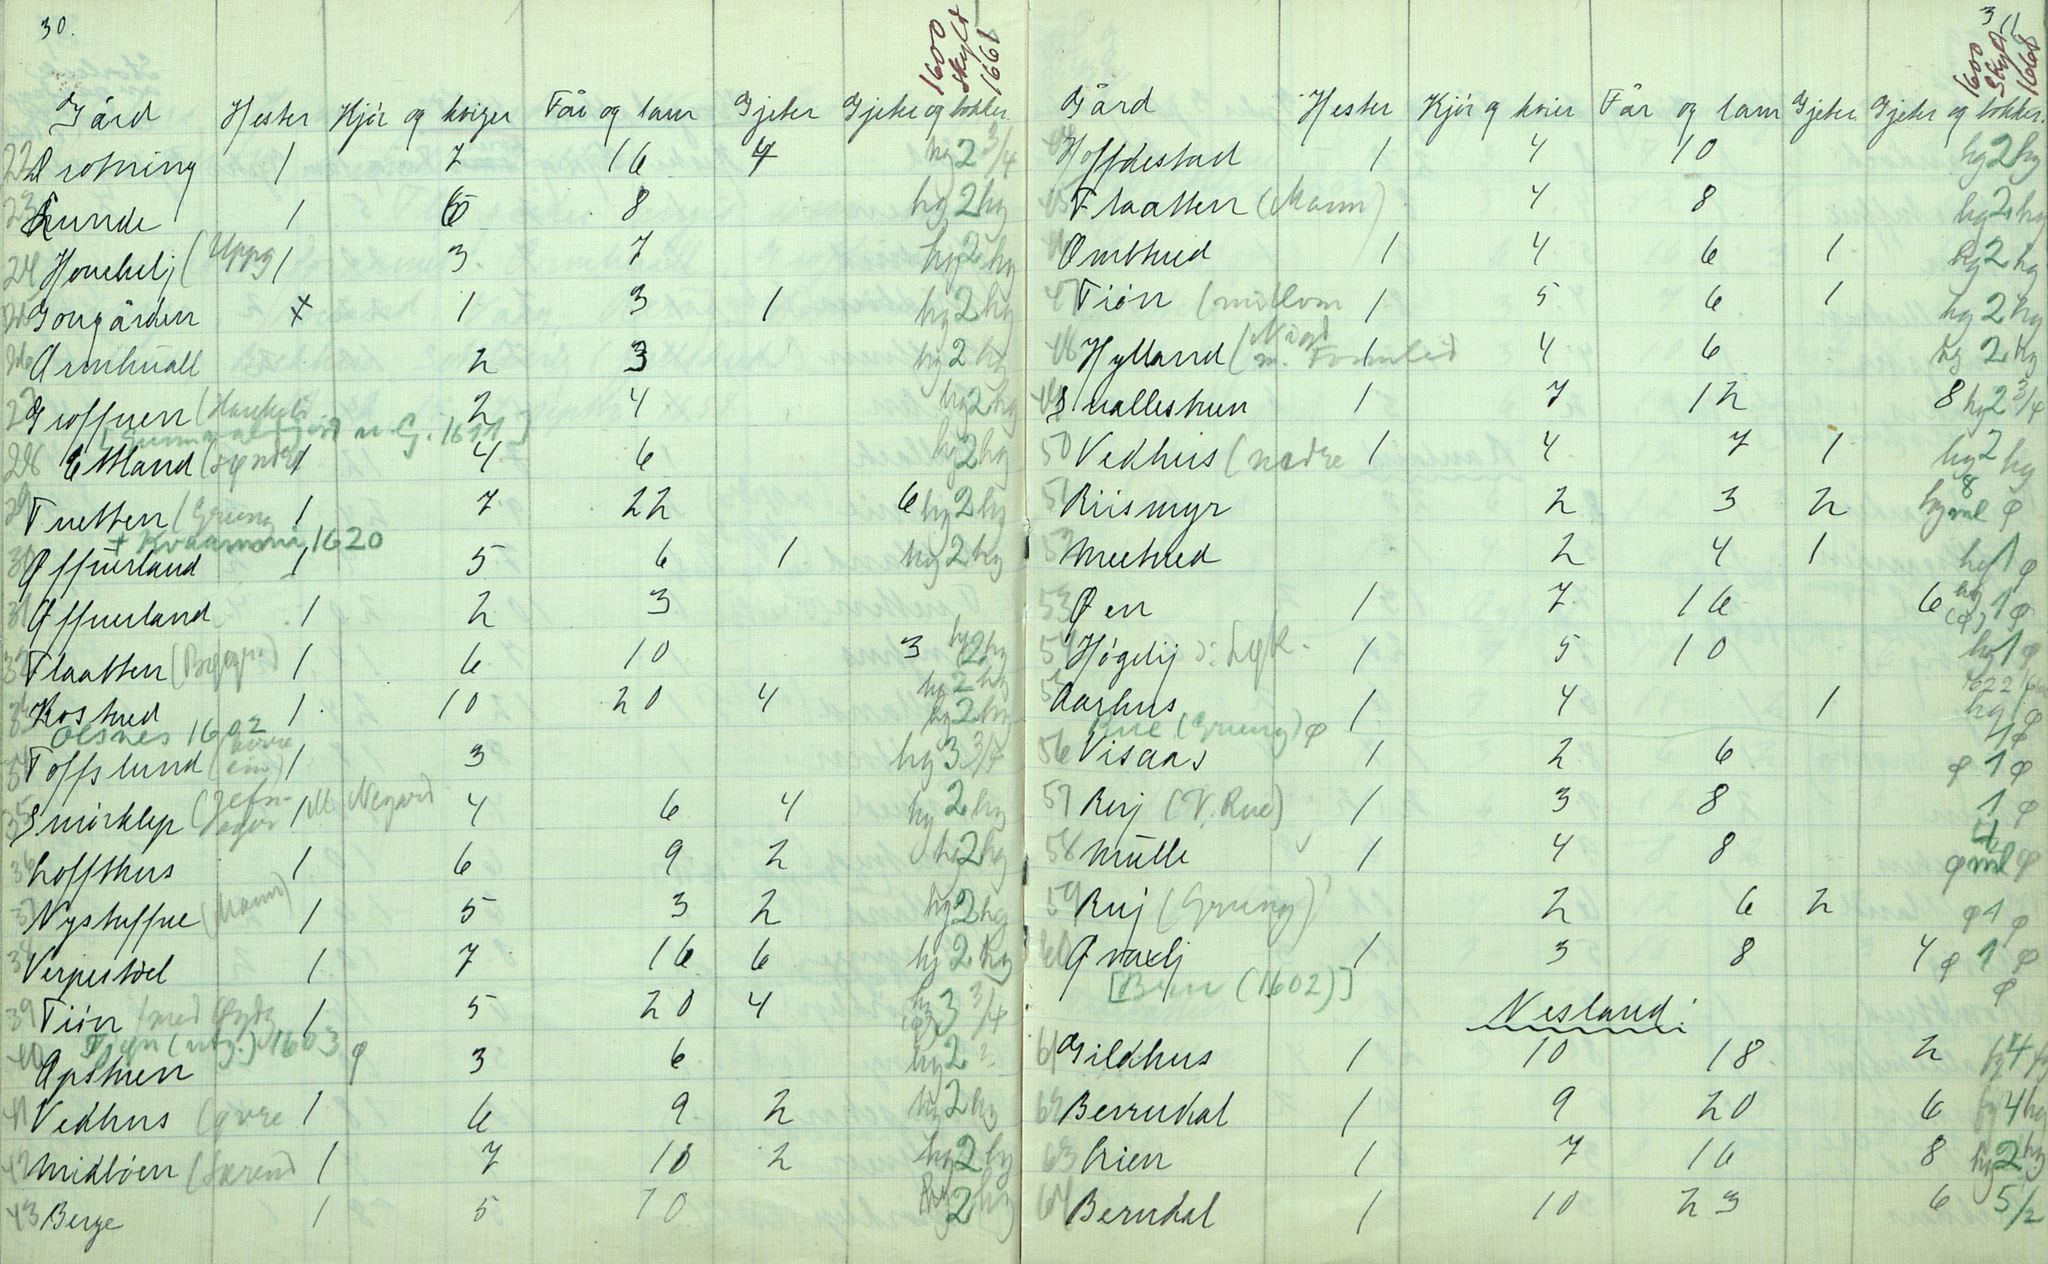 30.
1600 Skyld 1661
Gård Hester Kjör og kviger Får og lam Gjeter Gjeter og bokker
22 Drotning 1 7 16 4 hg 2 3/4
23 Lunde 1 6 8 hg 2 hg
24 Houckelj (Uppg 1 3 7 hg 2 hg
25 Gougården x 1 3 1 hg 2 hg
26 Armhuall 2 3 hg 2 hg
27 Groffuen (Haukeli 2 4 hg 2 hg
[ n. G. 1611]
28 Ettland (syndr 1 4 6 hg 2 hg
29 Tuetten (Grung 1 7 22 6 hg 2 hg
+ 1620
30 Øffuerland 1 5 6 1 hg 2 hg
31 Øffuerland 1 2 3
32 Flaatten (Bygjs.) 1 6 10 3 hg 2 hg
hg 2 hg
33 Rostued 1 10 20 4 hg 2 hg
Olsnes 1602
34 Toffslund (øvre 1 3 hg 3 3/4
35 Smörklep 1 M. Negard 4 6 4 hg 2 hg
36 Loffthus 1 6 9 2 hg 2 hg
37 Nystuffue (Mann) 1 5 3 2 hg 2 hg
38 Verpestöel 1 7 16 6 hg 2 hg
39 Tiön (med 1 5 20 4 hg 3 3/4
(ntg.) 1603
40 Apstuen φ 3 6 hg 2
41 Vedhus (øvre 1 6 9 2 hg 2 hg
42 Midböen 1 7 10 2 hg 2 hg
43 Berge 1 5 10 hg 2 hg
31
1600 Skyld 1668
Gård Hester Kjör og kvier Får og lam Gjeter Gjeter og bokker.
44 Hoffdestad 1 4 10 hg 2 hg
45 Flaatten (Mann) 4 8 hg 2 hg
46 Ombtued 1 4 6 1 hg 2 hg
47 Tiön (millom 1 5 6 1 hg 2 hg
48 Hylland (Nigard 1 4 6 hg 2 hg
49 Sualleshuen 1 7 12 8 hg 2 3/4
50 Vedhus (nedre 1 4 7 1 hg 2 hg
51 Riismyr 2 3 2 hg 8 ml φ
52 Meetued 2 4 1 hg 1 φ
53 Øen 1 7 16 6 hg (φ) 1 φ
54 Høgelij 1 5 10 hg 1 φ
1622
55 Aarhus 1 4 1 hg 1 φ
Rue (Grung) φ 1 φ
56 Visaas 1 2 6 φ 1 φ
57 Ruj (V. Rue) 1 3 8 1 φ
58 Mülle 1 4 8 φ 4 ml φ
59 Ruj (Grung) 2 6 2 φ 1 φ
60 Qvaelj 1 3 8 4 φ 1 φ
[ (1602)] φ
Nesland:
61 Gildhus 1 10 18 2 fg 4 fg
62 Berrudal 1 9 20 6 fg 4 hg
63 Lien 1 7 16 8 hg 2 hg
64 Berudal 1 10 23 6 5/2